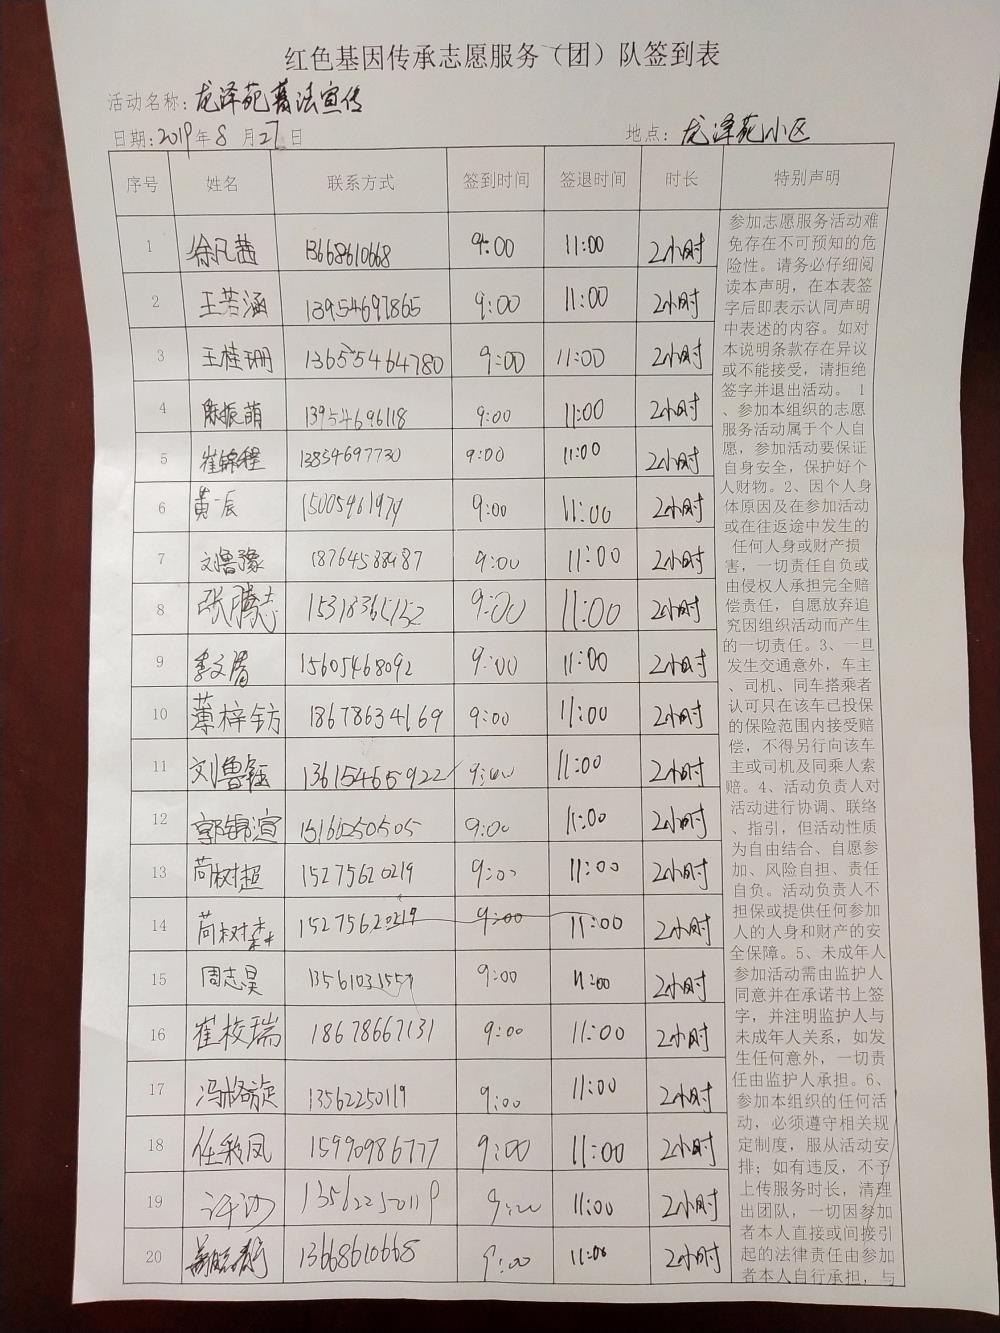 红色基因传承志愿服务（团）队签到表
活动名称：龙泽苑普法宣传
日期:2019年8月27日 地点：龙泽苑小区
序号 姓名 联系方式 签到时间 签退时间 时长 特别声明
1 徐凡茜 13668610668 9:00 11:00 2小时
2 王芳涵 13954697865 9:00 11:00 2小时
3 王桂珊 13655464780 9:00 11:00 2小时
4 陈振萌 13954696118 9:00 11:00 2小时
5 崔锦程 13854697730 9:00 11:00 2小时
6 黄一辰 15005461979 9:00 11:00 2小时
7 刘鲁豫 18764538987 9:00 11:00 2小时
8 张腾志 15318365152 9:00 11:00 2小时
9 李文清 15605468092 9:00 11:00 2小时
10 薄梓钫 18678634169 9:00 11:00 2小时
11 刘鲁钰 13615465922 9:00 11:00 2小时
12 郭锦渲 15166250505 9:00 11:00 2小时
13 苘树超 15275620219 9:00 11:00 2小时
14 苘树森 15275620219 9:00 11:00 2小时
15 周志昊 9:00 11:00 2小时
16 崔梭瑞 18678667131 9:00 11:00 2小时
17 冯格旋 13562250119 9:00 11:00 2小时
18 任彩凤 15990986777 9:00 11:00 2小时
19 13562250119 9:00 11:00 2小时
20 13668610665 9:00 11:00 2小时
参加志愿服务活动难
免存在不可预知的危
险性。请务必仔细阅
读本声明，在本表签
字后即表示认同声明
中表述的内容。如对
本说明条款存在异议
或不能接受，请拒绝
签字并退出活动。 1
、参加本组织的志愿
服务活动属于个人自
愿，参加活动要保证
自身安全，保护好个
人财物。2、因个人身
体原因及在参加活动
或在往返途中发生的
任何人身或财产损
害，一切责任自负或
由侵权人承担完全赔
偿责任，自愿放弃追
究因组织活动而产生
的一切责任。3、一旦
发生交通意外，车主
、司机、同车搭乘者
认可只在该车已投保
的保险范围内接受赔
偿，不得另行向该车
主或司机及同乘人索
赔。4、活动负责人对
活动进行协调、联络
、指引，但活动性质
为自由结合、自愿参
加、风险自担、责任
自负。活动负责人不
担保或提供任何参加
人的人身和财产的安
全保障。5、未成年人
参加活动需由监护人
同意并在承诺书上签
字，并注明监护人与
未成年人关系，如发
生任何意外，一切责
任由监护人承担。6、
参加本组织的任何活
动，必须遵守相关规
定制度，服从活动安
排；如有违反，不予
上传服务时长，清理
出团队，一切因参加
者本人直接或间接引
起的法律责任由参加
者本人自行承担，与